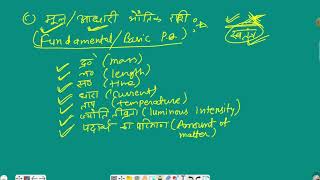 (c) मूल/आधारी भौतिक राशी
(Fundamental/Basic P.Q.) स्वतंत्र
द्र० (mass)
ल० (length)
स० (time)
धारा (Current)
ताप (temperature)
ज्योति तीव्रता (luminous Intensity)
पदार्थ का परिमाण (Amount of
matter)